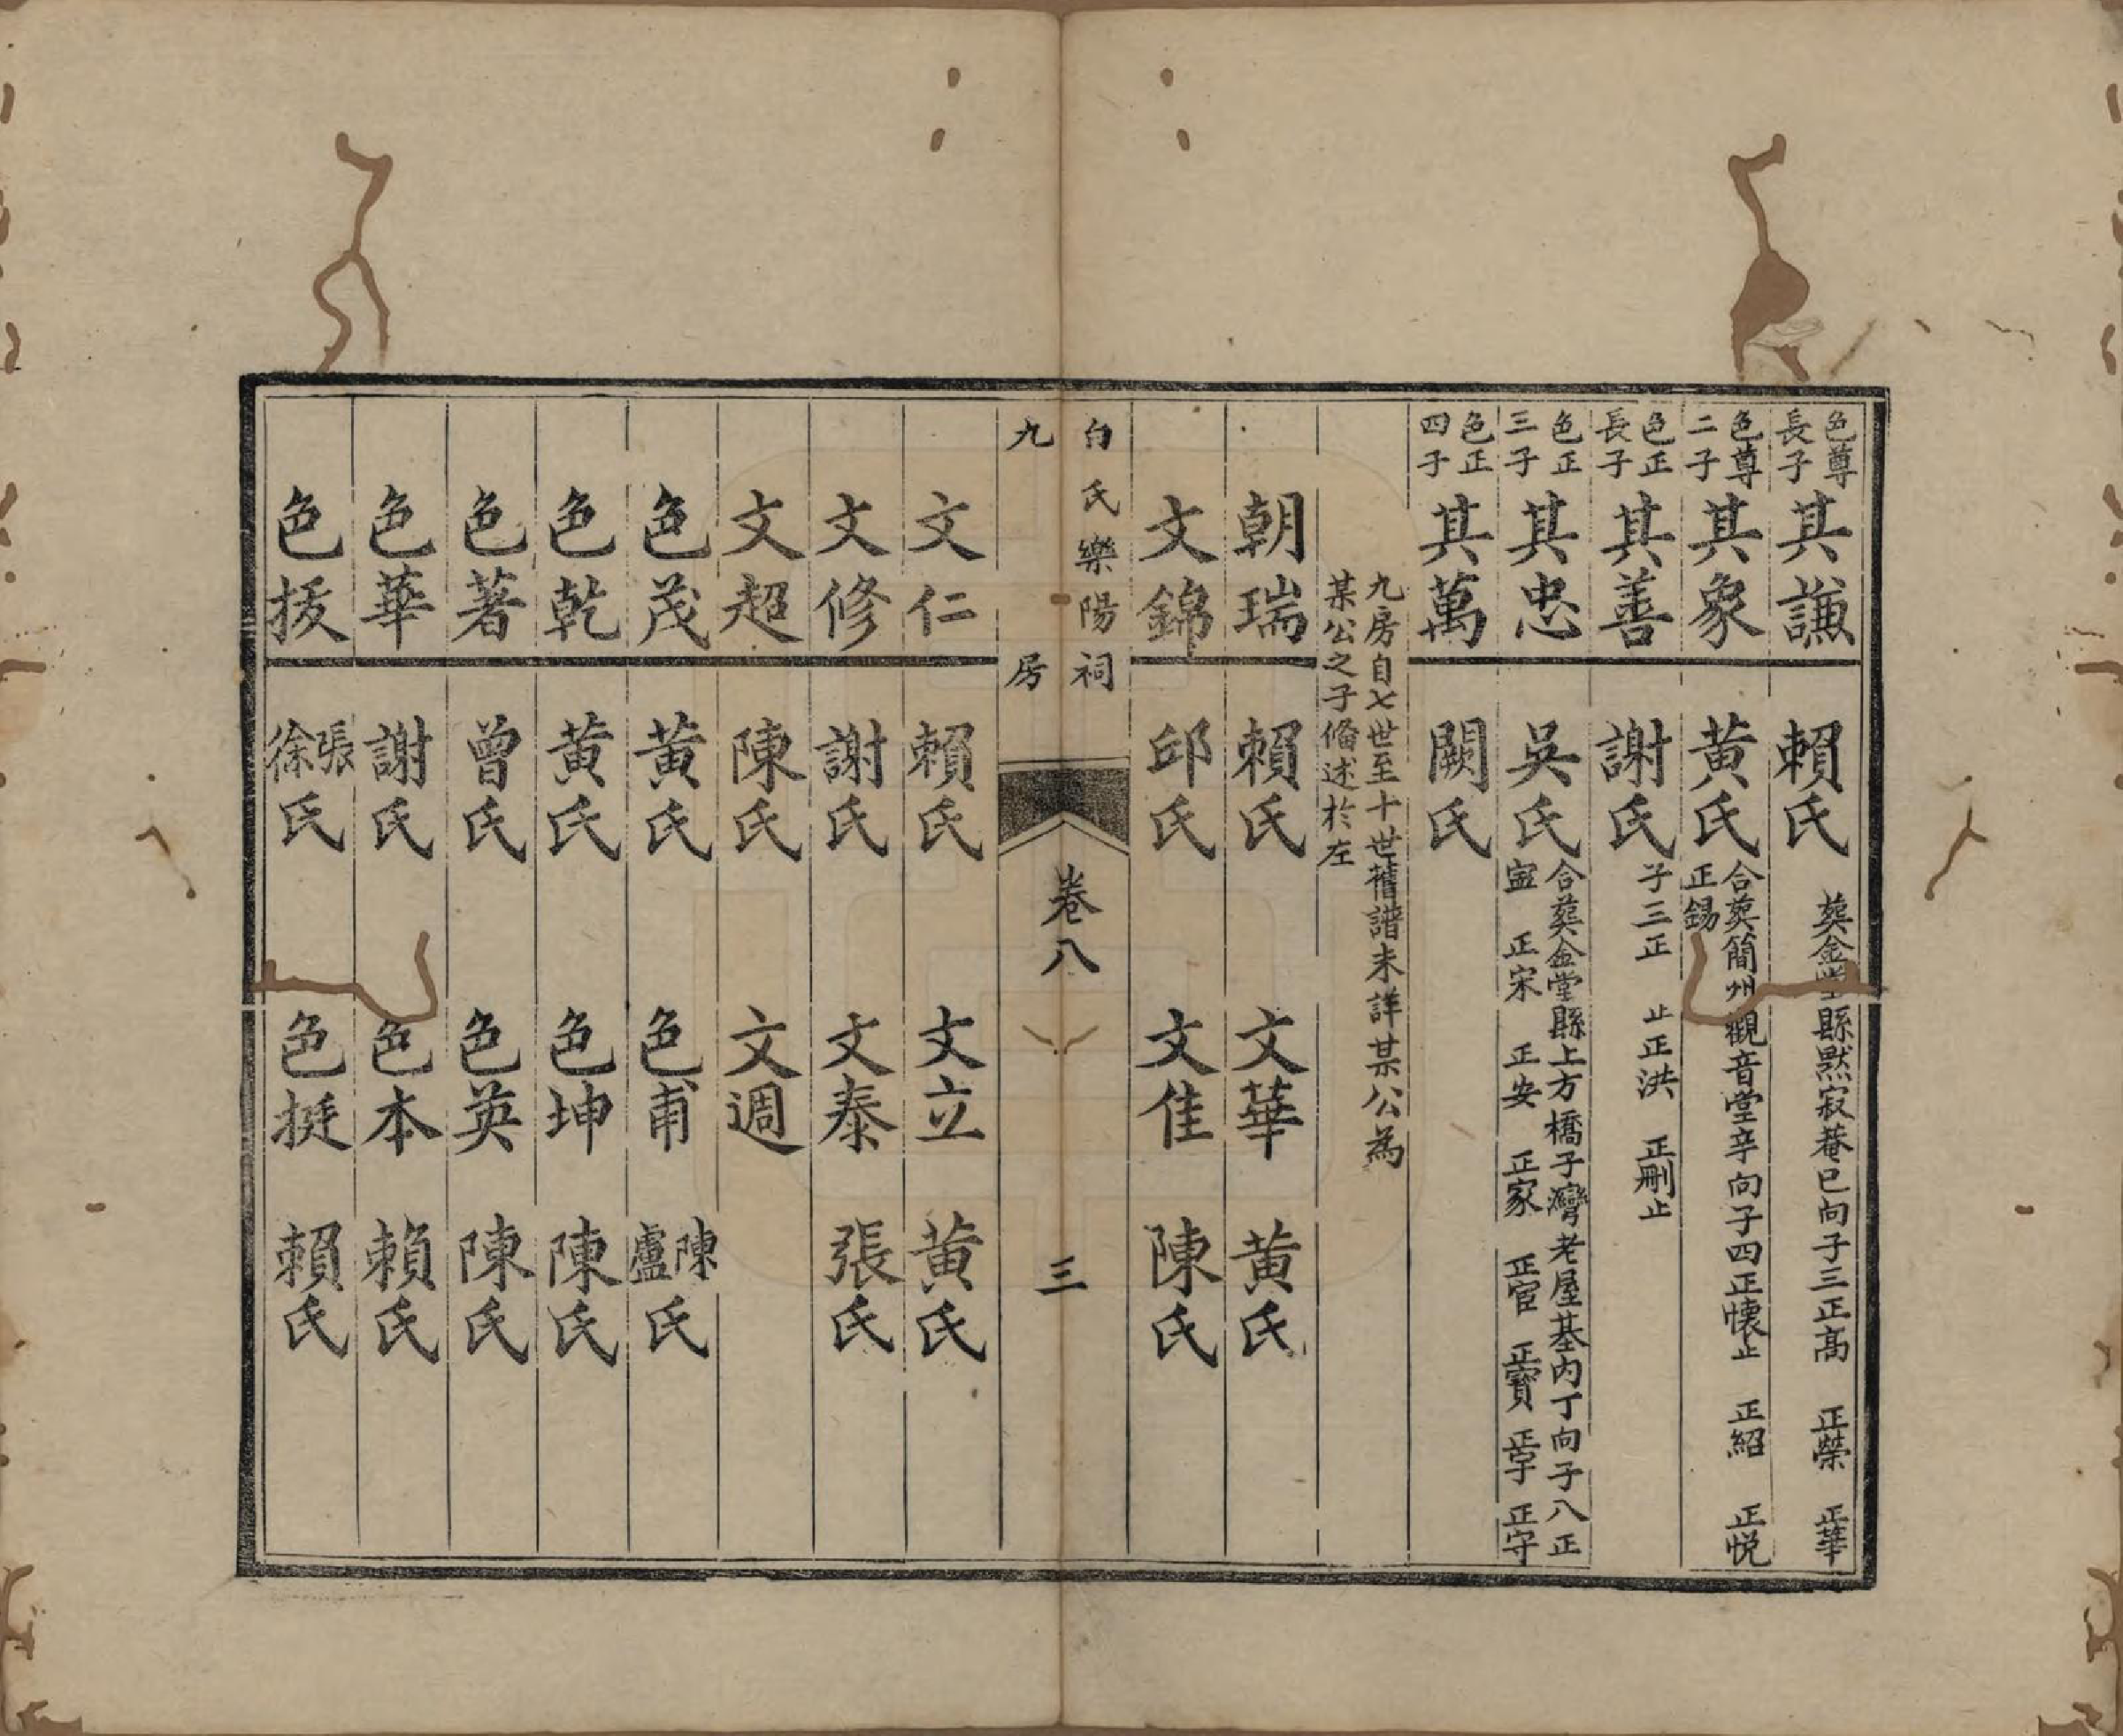 色尊長子 其謙 賴氏 葬金堂縣默寂菴巳向子三正高 正榮 正華
色尊二子 其象 黃氏 合葬簡州觀音堂辛向子四正懐止 正紹 正悅 正錫
色正長子 其善 謝氏 子三正 止正洪 正刪止
色正三子 其忠 吳氏 合葬金堂縣上方橋子灣老屋基內丁向子八正 正宋 正安 正家 正官 正寶 正字 正守
色正四子 其萬 闕氏
九房自七世至十世舊譜未詳某公為
某公之子俻述於左
朝瑞 賴氏 文華 黃氏
文錦 邱氏 文佳 陳氏
白氏樂陽祠 九房 卷八 三
文仁 賴氏 文立 黃氏
文修 謝氏 文泰 張氏
文超 陳氏 文週
色茂 黃氏 色甫 陳盧氏
色乾 黃氏 色坤 陳氏
色著 曾氏 色英 陳氏
色華 謝氏 色本 賴氏
色拔 張徐氏 色挺 賴氏